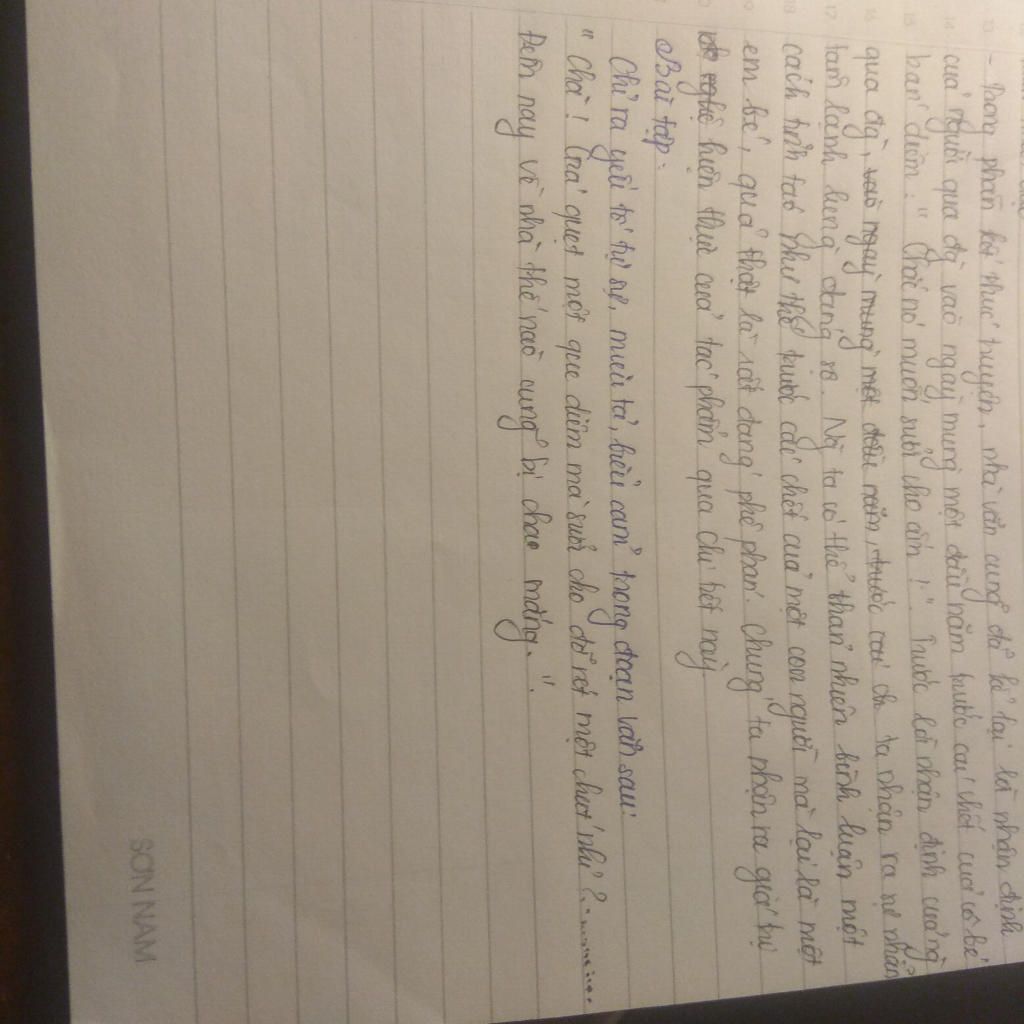 - Trong phần kết thúc truyện, nhà văn cũng đã kể lại lời nhận định
của người qua đường vào ngày mùng một đầu năm trước cái chết của cô bé
bán diêm: " Chắc nó muốn sưởi cho ấm ! ". Trước lời nhận định của người
qua đường, vào ngày mùng một đầu năm, trước cái ta nhận ra sự nhẫn
tâm lạnh lùng đáng sợ. Người ta có thể thản nhiên bình luận một
cách tỉnh táo như thế trước cái chết của một con người mà lại là một
em bé, quả thật là rất đáng phê phán. Chúng ta nhận ra giá trị
hiện thực của tác phẩm qua chi tiết này.
Bài tập:
Chỉ ra yếu tố tự sự, miêu tả, biểu cảm trong đoạn văn sau:
" Chà ! Giá quẹt một que diêm mà sưởi cho đỡ rét một chút nhỉ ?..........
Đêm nay về nhà thế nào cũng bị cha mắng. ".
SƠN NAM